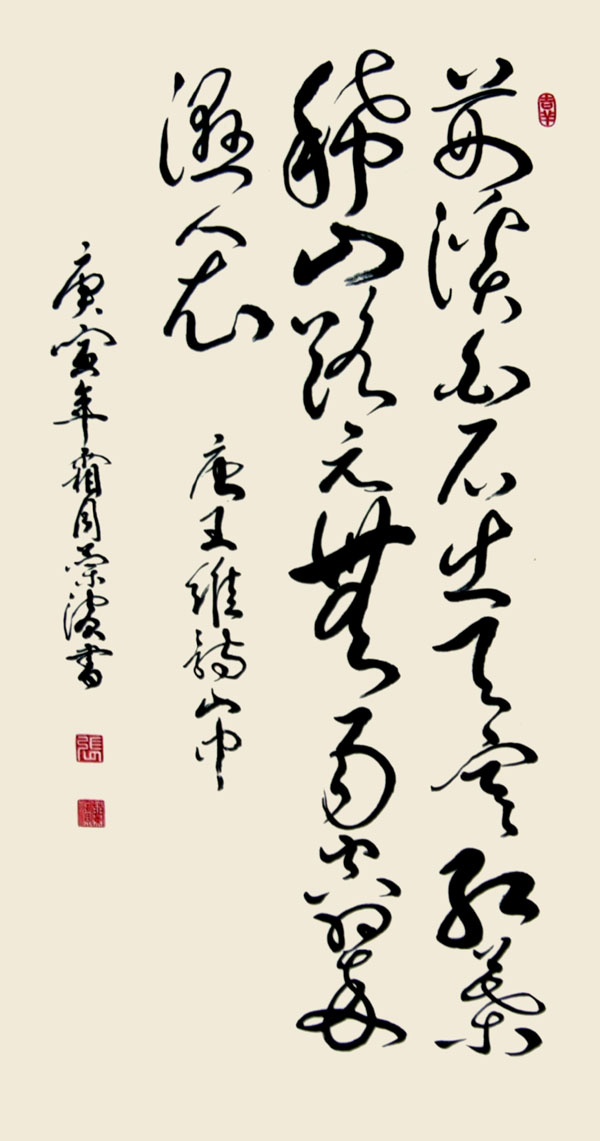 吉羊
荊溪白石出天寒紅葉
稀山路元無雨空翠
濕人衣
唐王維詩山中
庚寅年霜月榮濱書
張